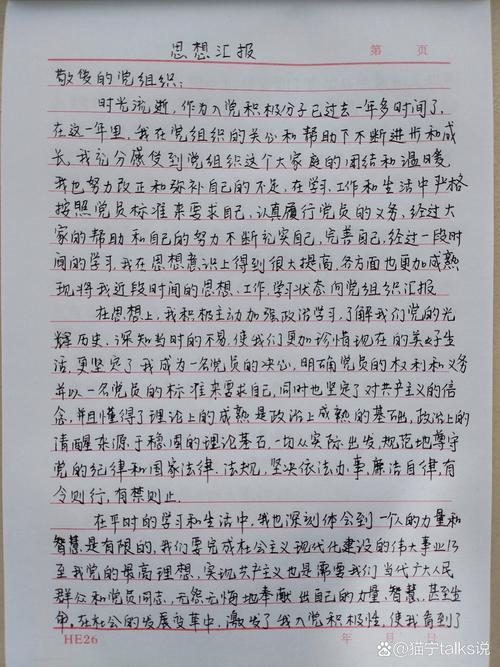 思想汇报
第 页
敬爱的党组织:
时光流逝,作为入党积极分子已过去一年多时间了,
在这一年里,我在党组织的关心和帮助下不断进步和成
长,我充分感受到党组织这个大家庭的团结和温暖
我也努力改正和弥补自己的不足,在学习、工作和生活中严格
按照党员标准来要求自己,认真履行党员的义务,经过大
家的帮助和自己的努力不断充实自己,完善自己,经过一段时
间的学习,我在思想意识上得到很大提高,各方面也更加成熟
现将我近段时间的思想、工作、学习状态向党组织汇报
在思想上,我积极主动加强政治学习,了解我们党的光
辉历史,深知当时的不易,使我们更加珍惜现在的美好生
活,更坚定了我成为一名党员的决心,明确党员的权利和义务
并以一名党员的标准来要求自己,同时也坚定了对共产主义的信
念,并且懂得了理论上的成熟是政治上成熟的基础,政治上的
清醒来源于稳固的理论基石,一切从实际出发,规范地遵守
党的纪律和国家法律、法规,坚决依法办事,廉洁自律,有
令则行,有禁则止.
在平时的学习和生活中,我也深刻体会到一个人的力量和
智慧是有限的,我们要完成社会主义现代化建设的伟大事业乃
至我党的最高理想,实现共产主义也是需要我们当代广大人民
群众和党员同志,无怨无悔地奉献出自己的力量、智慧、甚至生
命,在社会的发展变革中,激发了我入党积极性,使我看到了
HE26
年 月 日
@猫宁talks说